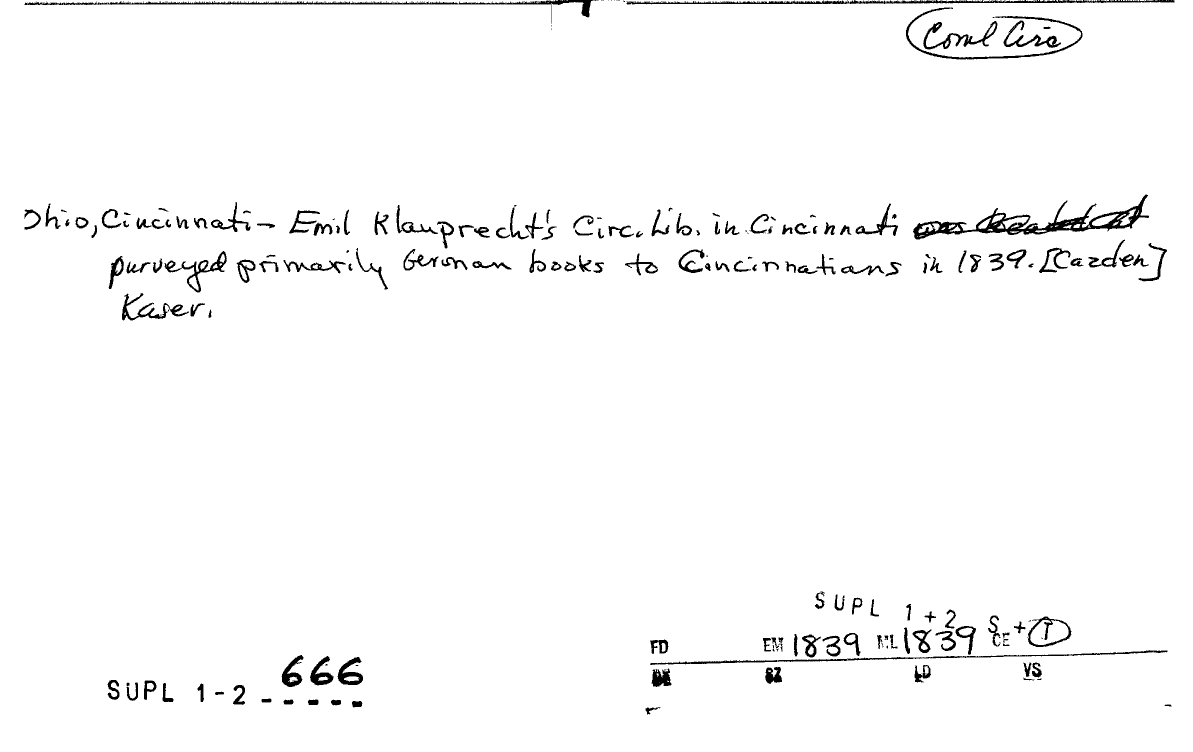 Coml Circ
Ohio, Cincinnati – Emil Klauprecht's Circ. Lib. in Cincinnati
purveyed primarily German books to Cincinnatians in 1839. [Cazden]
Kaser.
SUPL 1+2
FD EM 1839 ML 1839 S CE + T
SZ LD VS
SUPL 1-2 666